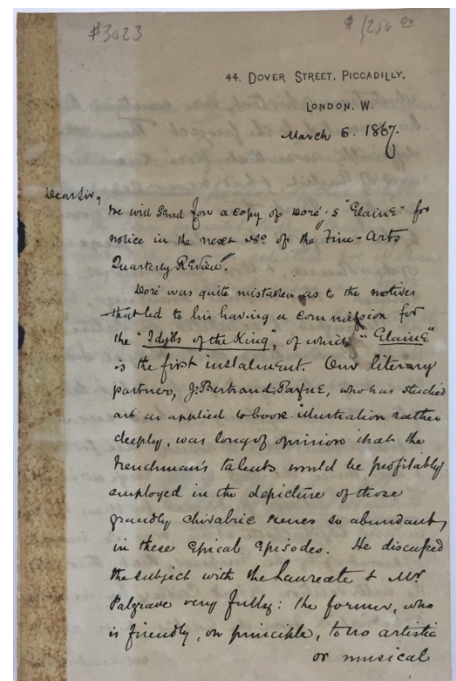 #3023 $1,250 00
44. DOVER STREET, PICCADILLY,
LONDON. W.
March 6. 1867.
Dear Sir,
We will send for a copy of Doré's "Elaine" for
notice in the next No. of the "Fine-Arts
Quarterly Review".
Doré was quite mistaken as to the motives
that led to his having a commission for
the "Idylls of the King", of which "Elaine"
is the first instalment. Our literary
partner, J. Bertrand Payne, who has studied
art as applied to book illustration rather
deeply, was long of opinion that the
Frenchman's talents would be profitably
employed in the depicture of those
grandly chivalric scenes so abundant
in these Epical Episodes. He discussed
the subject with the Laureate & Mr
Palgrave very fully: the former, who
is friendly, on principle, to no artistic
or musical